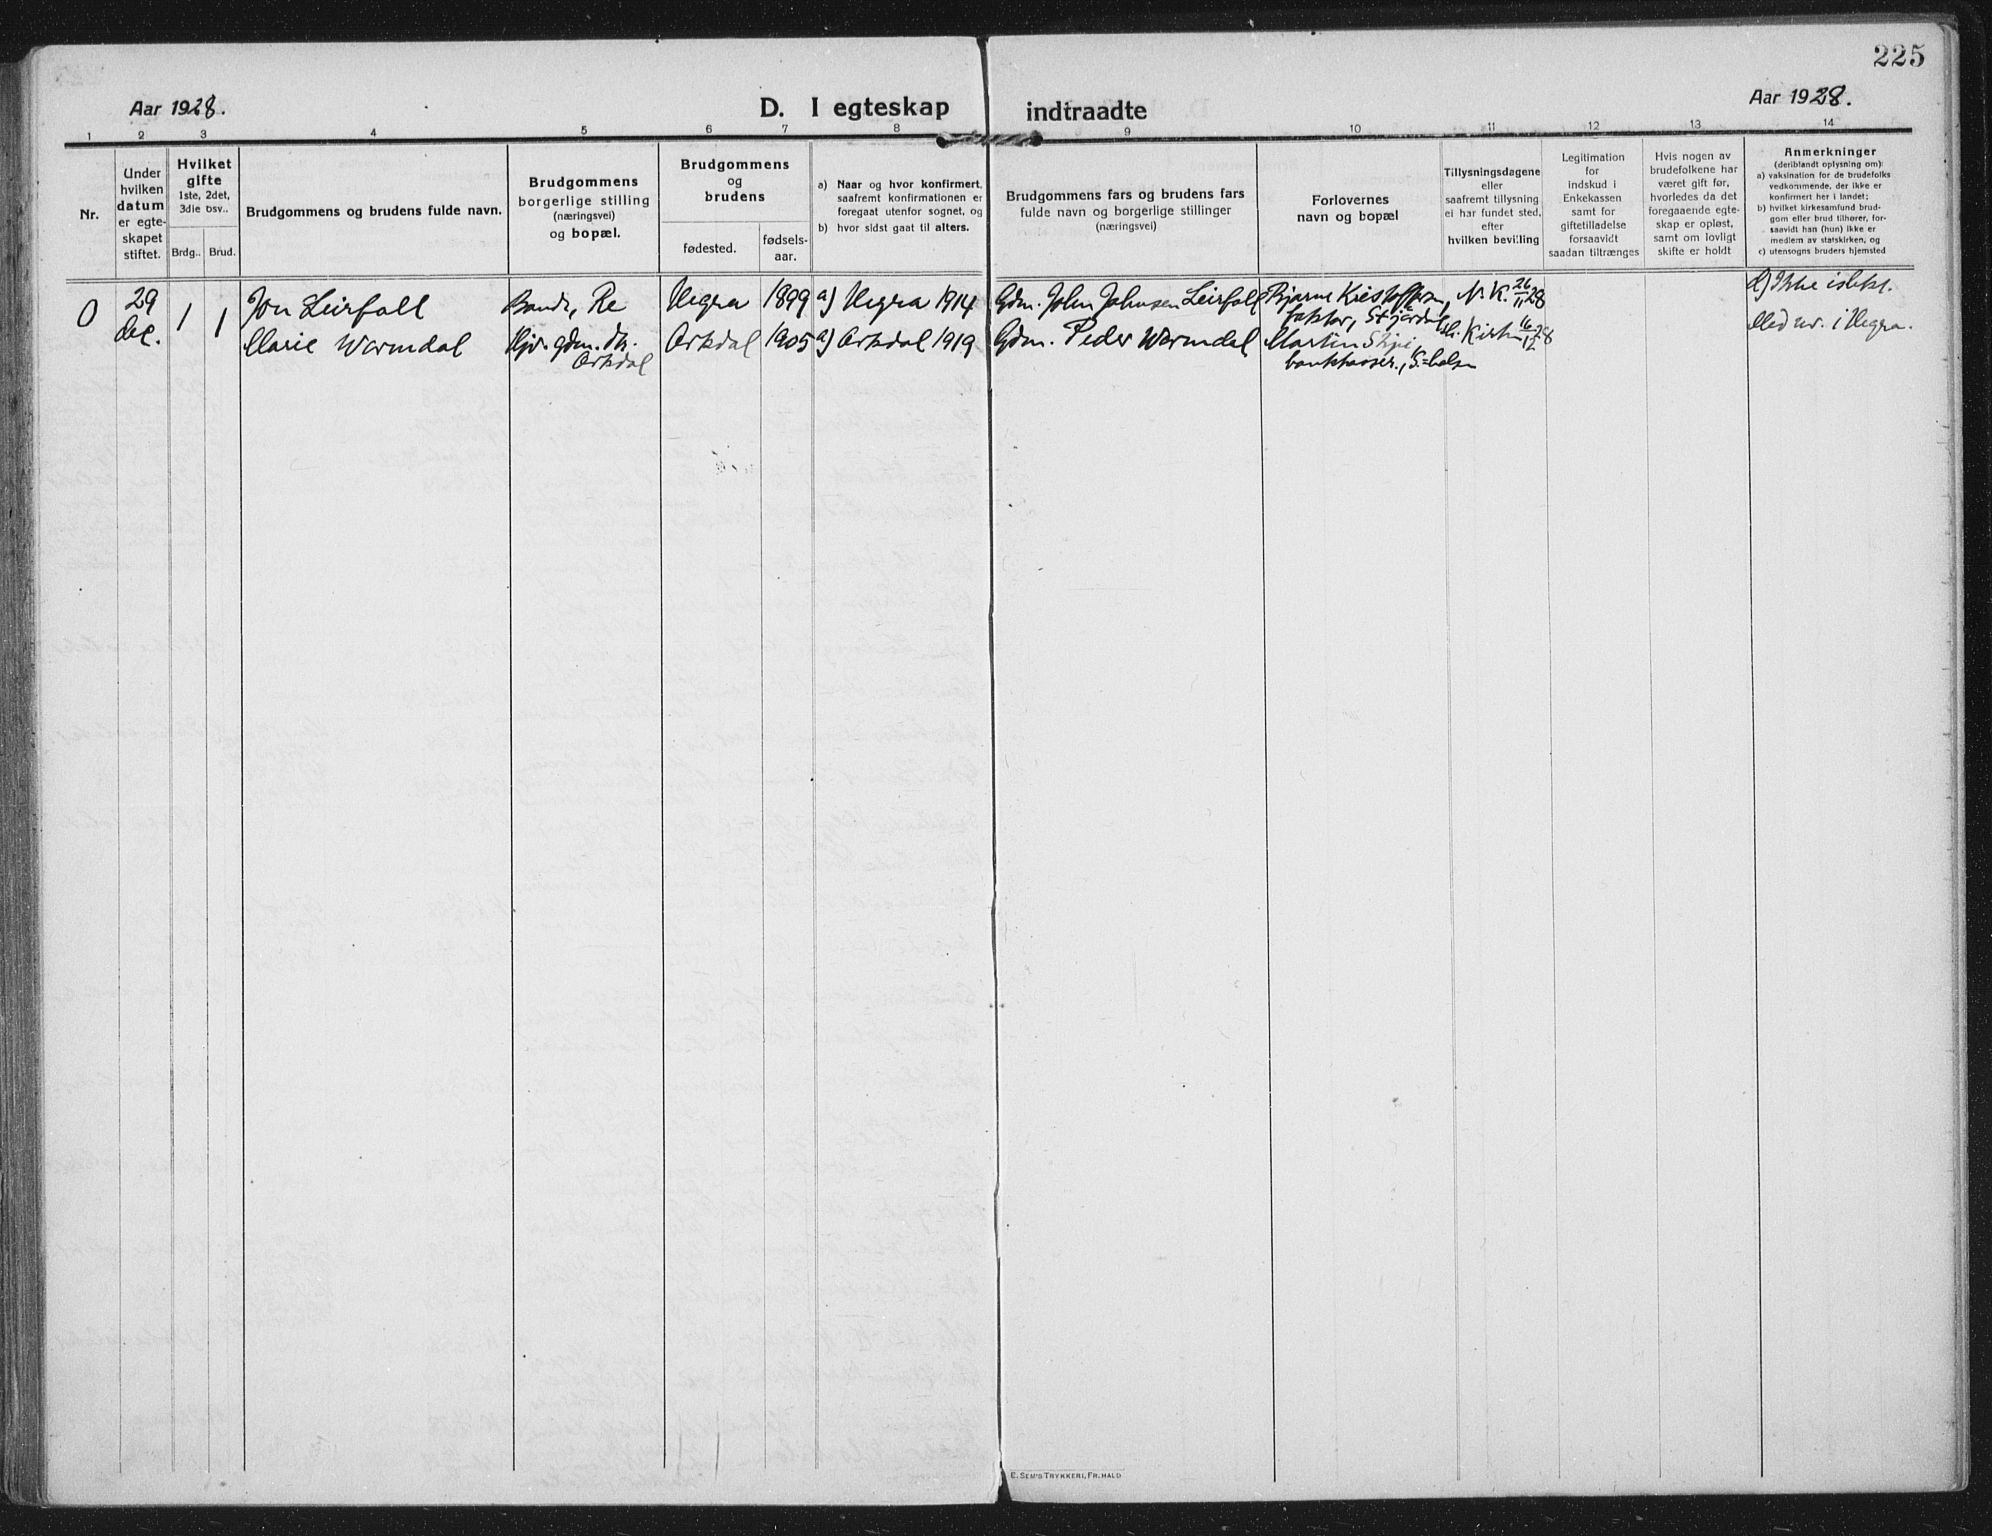 225
Aar 1928.
D. I egteskap indtraadte
Aar 1928.
1 2 3 4 5 6 7 8 9 10 11 12 13 14
Nr.
Under
hvilken
datum
er egte-
skapet
stiftet.
Hvilket
gifte
1ste, 2det,
3die osv..
Brdg.. Brud.
Brudgommens og brudens fulde navn.
Brudgommens
borgerlige stilling
(næringsvei)
og bopæl.
Brudgommens
og
brudens
fødested.
fødsels-
aar.
a) Naar og hvor konfirmert,
saafremt konfirmationen er
foregaat utenfor sognet, og
b) hvor sidst gaat til alters.
Brudgommens fars og brudens fars
fulde navn og borgerlige stillinger
(næringsvei)
Forlovernes
navn og bopæl
Tillysningsdagene
eller
saafremt tillysning
ei har fundet sted,
efter
hvilken bevilling
Legitimation
for
indskud i
Enkekassen
samt for
giftetilladelse
forsaavidt
saadan tiltrænges
Hvis nogen av
brudefolkene har
været gift før,
hvorledes da det
foregaaende egte-
skap er opløst,
samt om lovligt
skifte er holdt
Anmerkninger
(deriblandt oplysning om):
a) vaksination for de brudefolks
vedkommende, der ikke er
konfirmert her i landet;
b) hvilket kirkesamfund brud-
gom eller brud tilhører, for-
saavidt han (hun) ikke er
medlem av statskirken, og
c) utensogns bruders hjemsted
0 29 1 1 Jon Leirfall
Bonde, Re Hegra 1899 a) Hegra 1914 Gdm. John Johnsen Leirfall Bjarne Kristoffersen, N. K. 26/11 28
faktor, Stjørdal
dec. Marie Warmdal Hjv. gdm. dtr. Orkdal 1905 a) Orkdal 1919 Gdm. Peder Warmdal Martin Skjei Kirken 16/12 28
Orkdal
Med nr. i Hegra.
E. SEM'S TRYKKERI, FR.HALD